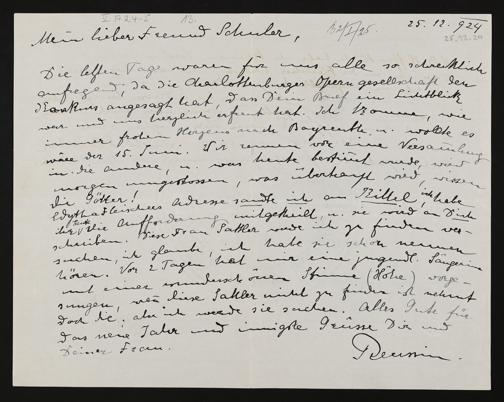 25. 12. 924
Mein lieber Freund Schuler,
Die letzten Tage waren für uns alle so schrecklich
aufregend, da die Charlottenburger Operngesellschaft den
Konkurs angesagt hat, dass Dein Brief ein Lichtblick
war und uns herzlich erfreut hat. Ich komme, wie
immer frohen Herzens nach Bayreuth u. wollte es
wäre der 15. Juni. Wir rennen von eine Versammlung
in die andere, u. was heute bestimmt wurde, wird
morgen umgestossen, was überhaupt wird, wissen
die Götter!
Adresse sandte ich an Kittel, ich habe
ihr die Aufforderung mitgeteilt, u. sie wird an Dich
schreiben. Diese Frau Sattler werde ich zu finden ver-
suchen, ich glaube, ich habe sie schon nennen
hören. Vor 2 Tagen hat mir eine jugendl. Sängerin
mit einer wunderschönen Stimme (Höhe) vorge-
sungen, wenn diese Sattler nicht zu finden ist nehmt
doch die; aber ich werde sie suchen. Alles Gute für
das neue Jahr und innigste Grüsse Dir und
Deiner Frau.